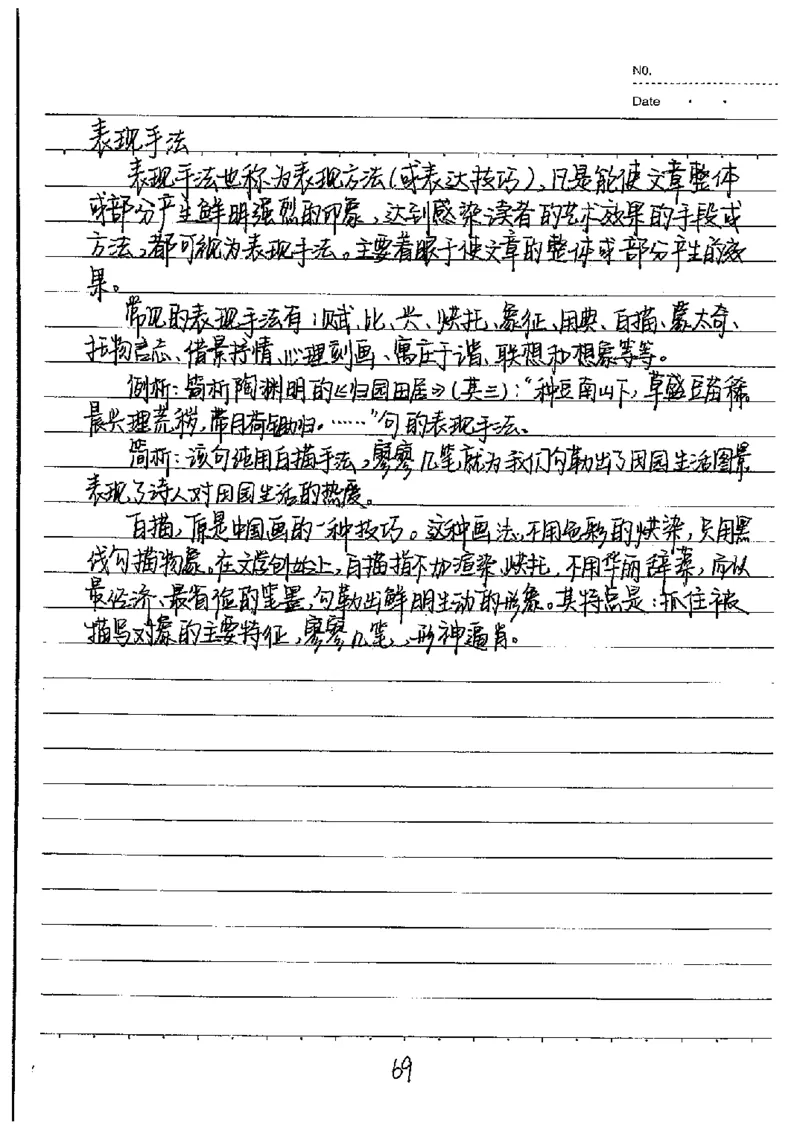 No.
Date
表现手法
表现手法也称为表现方法(或表达技巧),凡是能使文章整体
或部分产生鲜明强烈的印象,达到感染读者的艺术效果的手段或
方法,都可视为表现手法。主要着眼于使文章的整体或部分产生的效
果。
常见的表现手法有:赋、比、兴、烘托、象征、用典、白描、蒙太奇、
托物言志、借景抒情、心理刻画、寓庄于谐、联想和想象等等。
例析:简析陶渊明的《归园田居》(其三):“种豆南山下,草盛豆苗稀
晨兴理荒秽,带月荷锄归。……”句的表现手法。
简析:该句纯用白描手法,寥寥几笔就为我们勾勒出了田园生活图景
表现了诗人对田园生活的热爱。
白描,原是中国画的一种技巧。这种画法,不用色彩的烘染,只用黑
线勾描物象。在文学创作上,白描指不加渲染、烘托,不用华丽辞藻,而以
最经济、最省俭的笔墨,勾勒出鲜明生动的形象。其特点是:抓住被
描写对象的主要特征,寥寥几笔,形神逼肖。
69